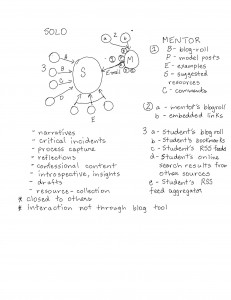 SOLO
MENTOR
1 B - blog-roll
P - model posts
E - examples
S - suggested resources
C - comments
2 a - mentor's blogroll
b - embedded links
3 a - Student's blog roll
b - Student's bookmarks
c - Student's RSS feeds
d - Student's online
search results from
other sources
e - Student's RSS
feed aggregator
S
M
Email
3
2
- narratives
- critical incidents
- process capture
- reflections
- confessional content
- introspective, insights
- drafts
- resource-collection
* closed to others
* interaction not through blog tool